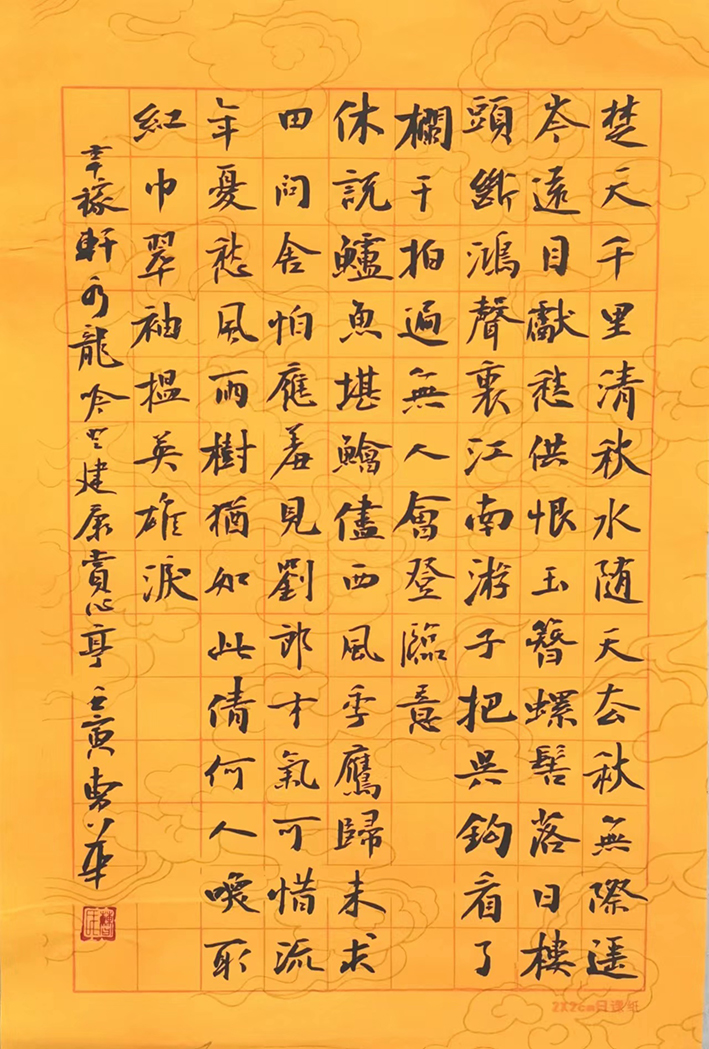 楚天千里清秋水随天去秋無際遥
岑遠目獻愁供恨玉簪螺髻落日樓
頭斷鴻聲裏江南游子把吳鈎看了
欄干拍遍無人會登臨意
休説鱸魚堪鱠儘西風季鷹歸未求
田問舍怕應羞見劉郎才氣可惜流
年憂愁風雨樹猶如此倩何人喚取
紅巾翠袖揾英雄淚
辛稼軒水龍吟登建康賞心亭 壬寅
2X2cm日课纸